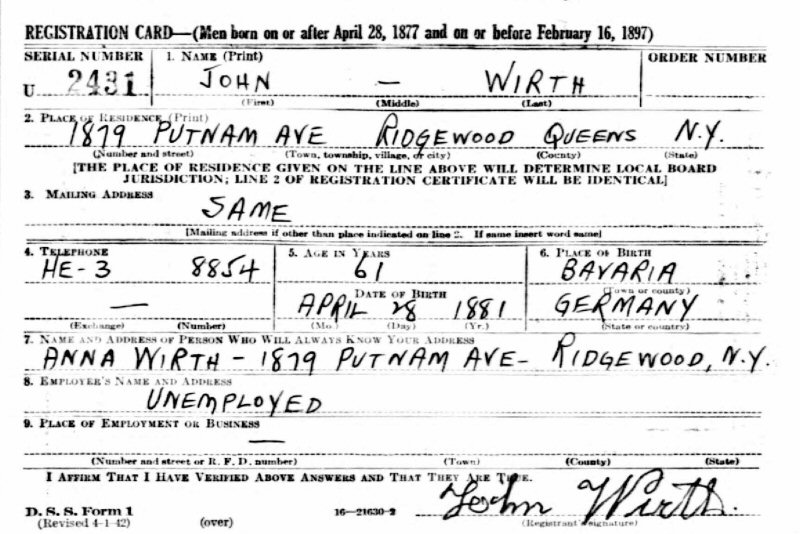 REGISTRATION CARD—(Men born on or after April 28, 1877 and on or before February 16, 1897)
SERIAL NUMBER 1. NAME (Print) ORDER NUMBER
U 2431 JOHN — WIRTH
(First) (Middle) (Last)
2. PLACE OF RESIDENCE (Print)
1879 PUTNAM AVE RIDGEWOOD QUEENS N.Y.
(Number and street) (Town, township, village, or city) (County) (State)
[THE PLACE OF RESIDENCE GIVEN ON THE LINE ABOVE WILL DETERMINE LOCAL BOARD
JURISDICTION; LINE 2 OF REGISTRATION CERTIFICATE WILL BE IDENTICAL]
3. MAILING ADDRESS
SAME
[Mailing address if other than place indicated on line 2. If same insert word same]
4. TELEPHONE 5. AGE IN YEARS 6. PLACE OF BIRTH
HE-3 8854 61 BAVARIA
DATE OF BIRTH (Town or county)
— APRIL 28 1881 GERMANY
(Exchange) (Number) (Mo.) (Day) (Yr.) (State or country)
7. NAME AND ADDRESS OF PERSON WHO WILL ALWAYS KNOW YOUR ADDRESS
ANNA WIRTH - 1879 PUTNAM AVE- RIDGEWOOD, N.Y.
8. EMPLOYER'S NAME AND ADDRESS
UNEMPLOYED
9. PLACE OF EMPLOYMENT OR BUSINESS
—
(Number and street or R. F. D. number) (Town) (County) (State)
I AFFIRM THAT I HAVE VERIFIED ABOVE ANSWERS AND THAT THEY ARE TRUE.
John Wirth.
D. S. S. Form 1
(Revised 4-1-42) (over) 16—21630-2 (Registrant's signature)